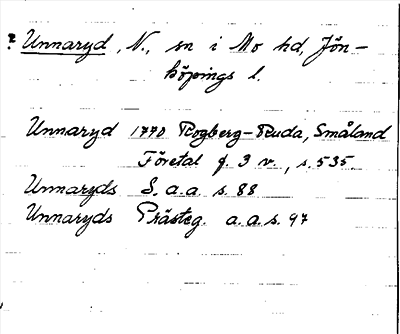 Unnaryd, N., sn i Mo hd, Jön-
köpings l.
Unnaryd 1770 Rogberg-Ruda, Småland
Företal f. 3 v., s. 535.
Unnaryds S. a.a s. 88
Unnaryds Prästeg. a.a.s. 97